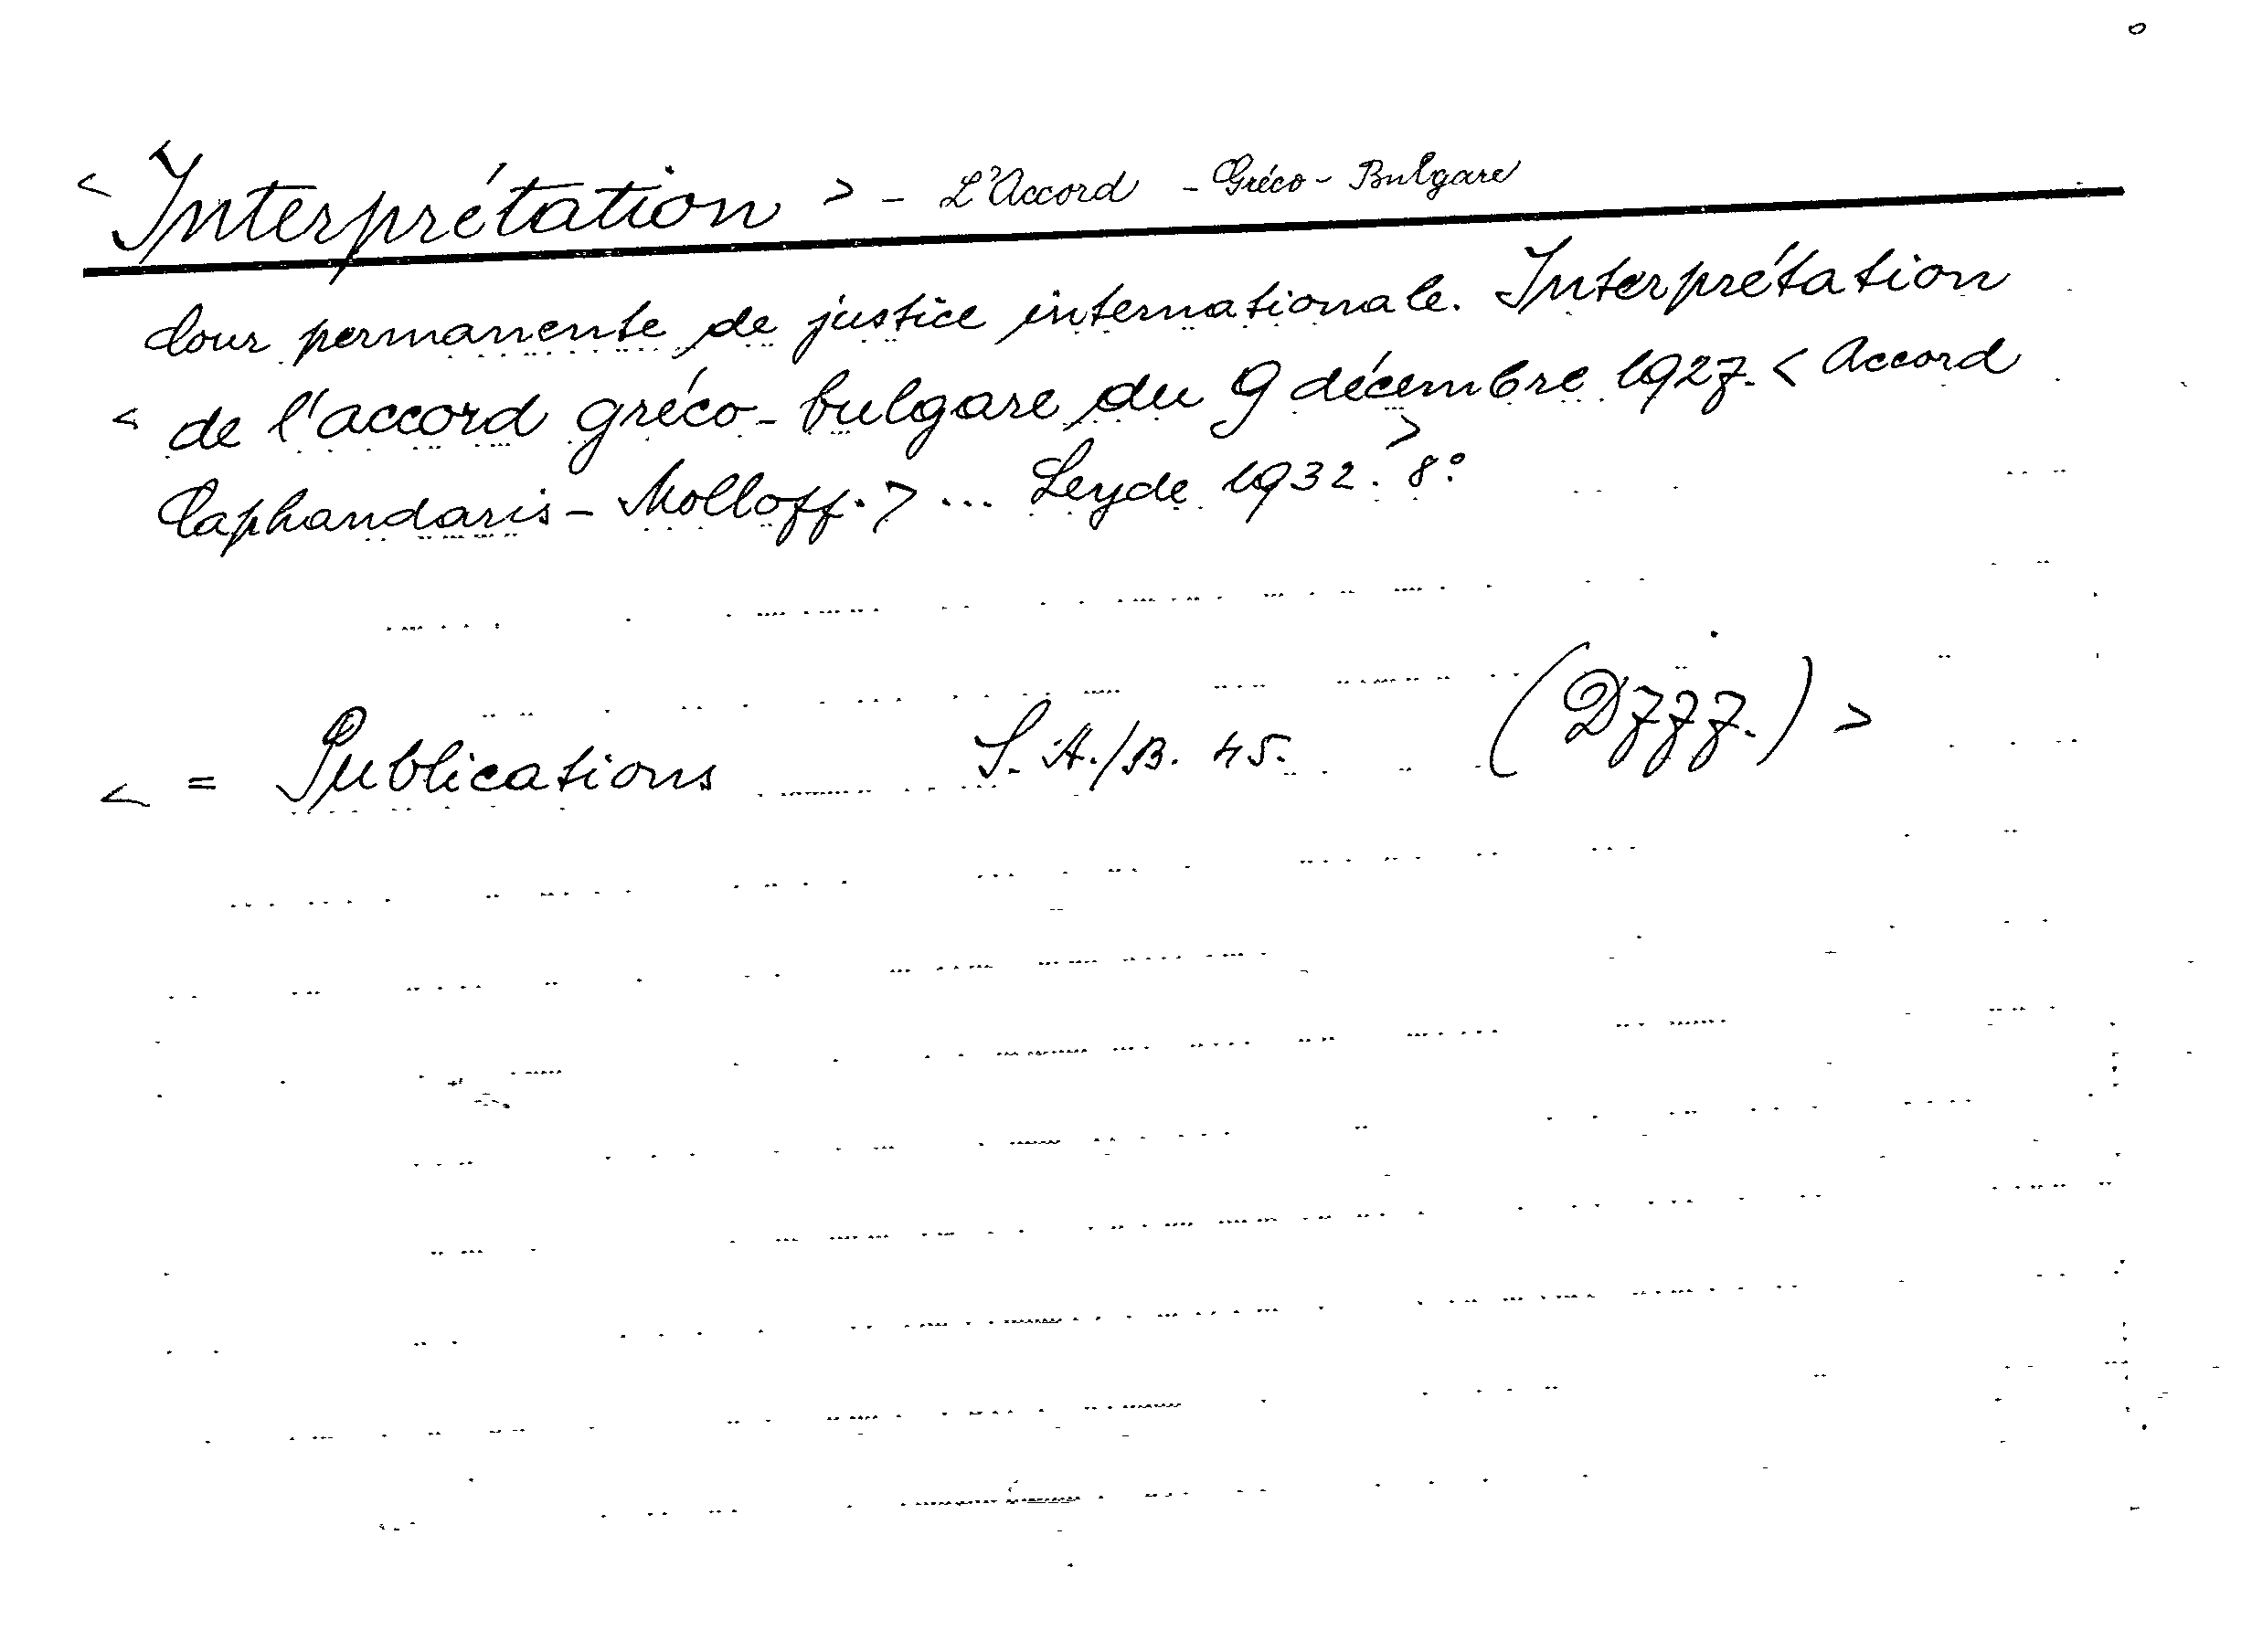 < Interprétation > - L'Accord - Gréco - Bulgare
Cour permanente de justice internationale. Interprétation
< de l'accord gréco-bulgare du 9 décembre 1927. < Accord
Caphandaris - Molloff. > ... Leyde 1932. > 8°.
< = Publications S. A./B. 45. (D777.) >